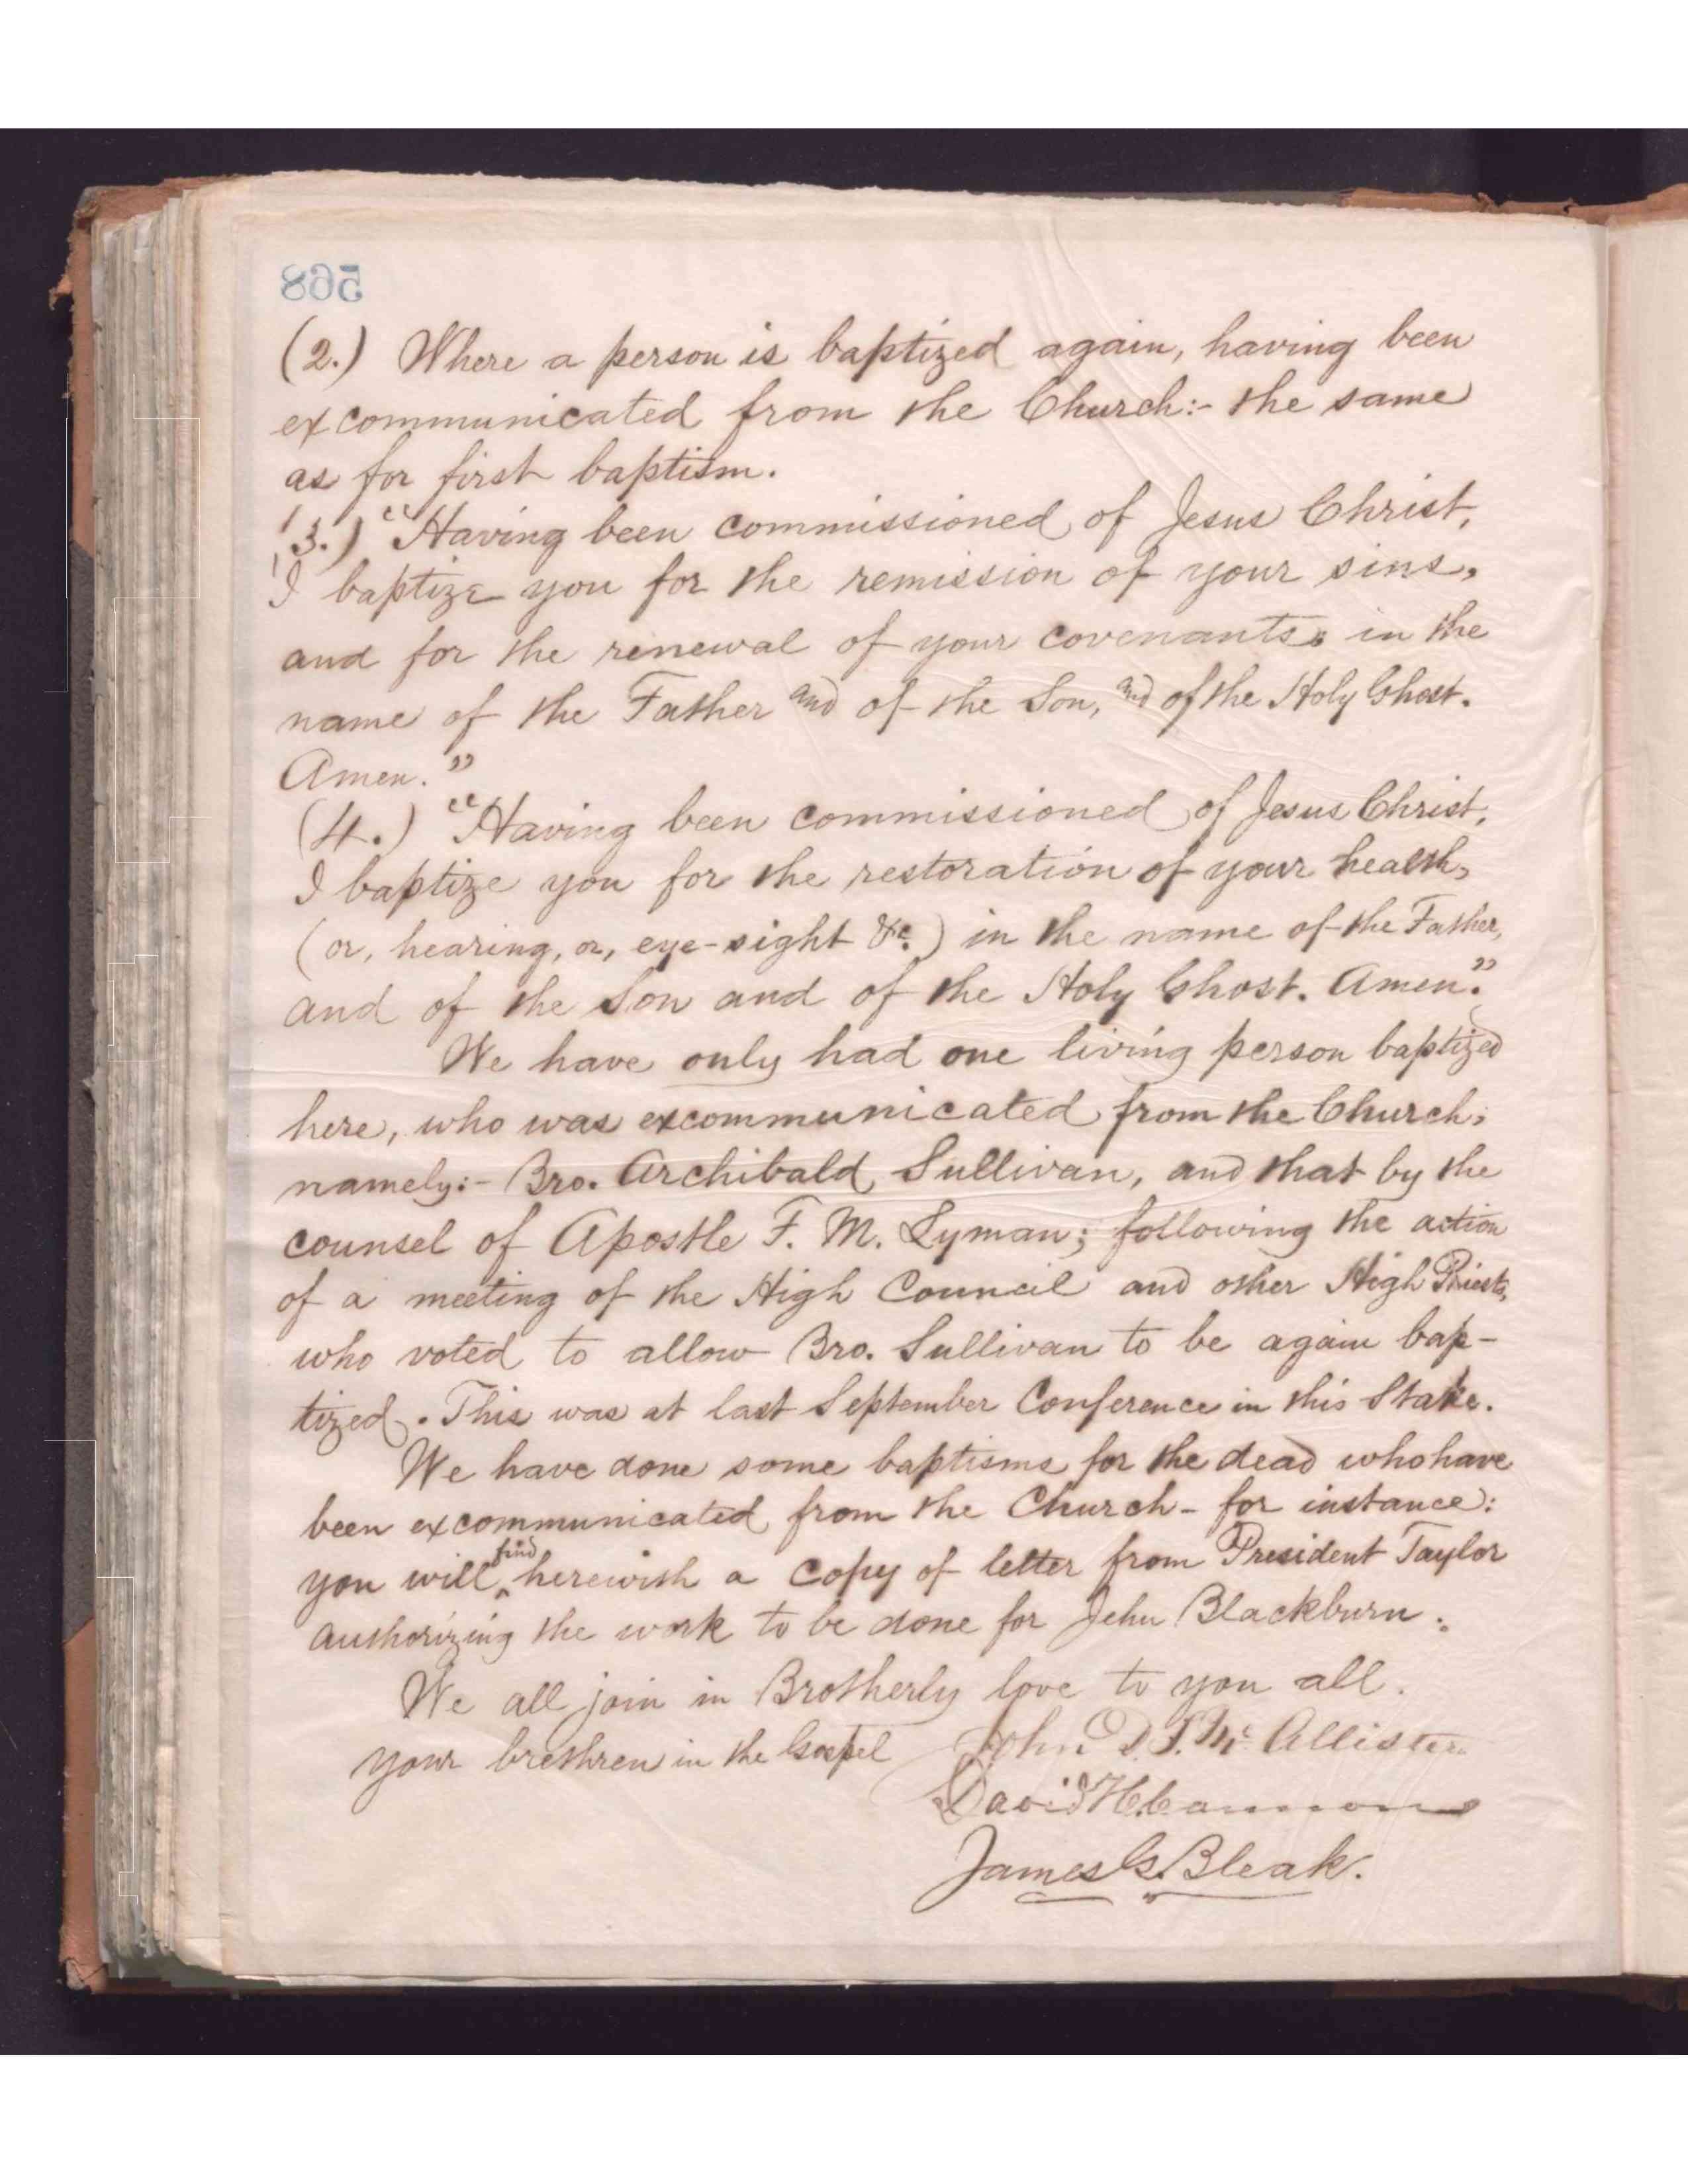 568
(2.) Where a person is baptized again, having been
excommunicated from the Church:- the same
as for first baptism.
(3.) "Having been commissioned of Jesus Christ,
I baptize you for the remission of your sins,
and for the renewal of your covenants, in the
name of the Father and of the Son, and of the Holy Ghost.
Amen."
(4.) "Having been commissioned of Jesus Christ,
I baptize you for the restoration of your health,
(or, hearing, or, eye-sight &c.) in the name of the Father,
and of the Son and of the Holy Ghost. Amen."
We have only had one living person baptized
here, who was excommunicated from the Church;
namely:- Bro. Archibald Sullivan, and that by the
counsel of Apostle F. M. Lyman; following the action
of a meeting of the High Council and other High Priests,
who voted to allow Bro. Sullivan to be again bap-
tized. This was at last September Conference in this Stake.
We have done some baptisms for the dead who have
been excommunicated from the Church - for instance:
you will find herewith a copy of letter from President Taylor
authorizing the work to be done for Jehu Blackburn.
We all join in Brotherly love to you all.
Your brethren in the Gospel John D. T. McAllister
David H. Cannon
James G. Bleak.